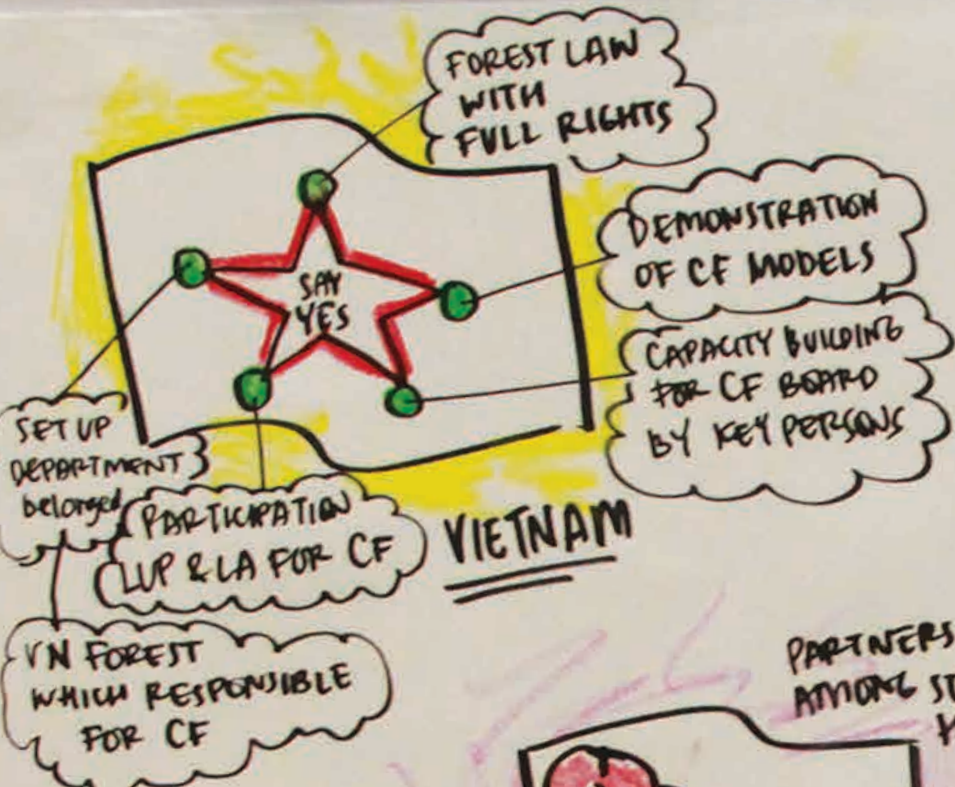 FOREST LAW
WITH
FULL RIGHTS
DEMONSTRATION
OF CF MODELS
SAY
YES
CAPACITY BUILDING
FOR CF BOARD
BY KEY PERSONS
SET UP
DEPARTMENT
belonged
PARTICIPATION
LUP & LA FOR CF
VIETNAM
VN FOREST
WHICH RESPONSIBLE
FOR CF
PARTNERS
AMONG ST